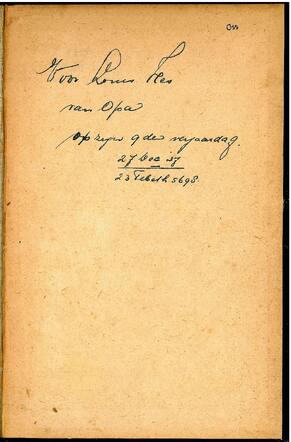 Voor Louis Fles
van Opa
op zijn 9de verjaardag.
27 Dec 37
23 Tebeth 5698.